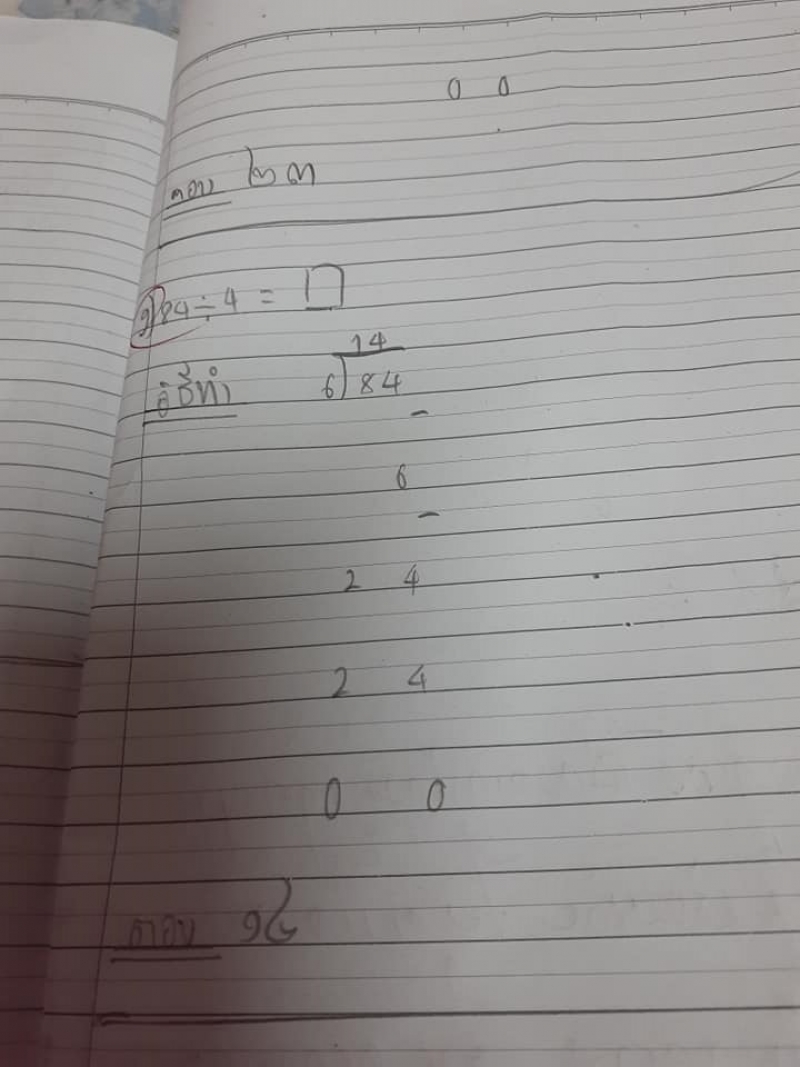 0 0
ตอบ ๒๓
๑) 84 ÷ 4 = □
วิธีทำ
14
6)84
-
6
-
2 4
2 4
0 0
ตอบ ๑๔